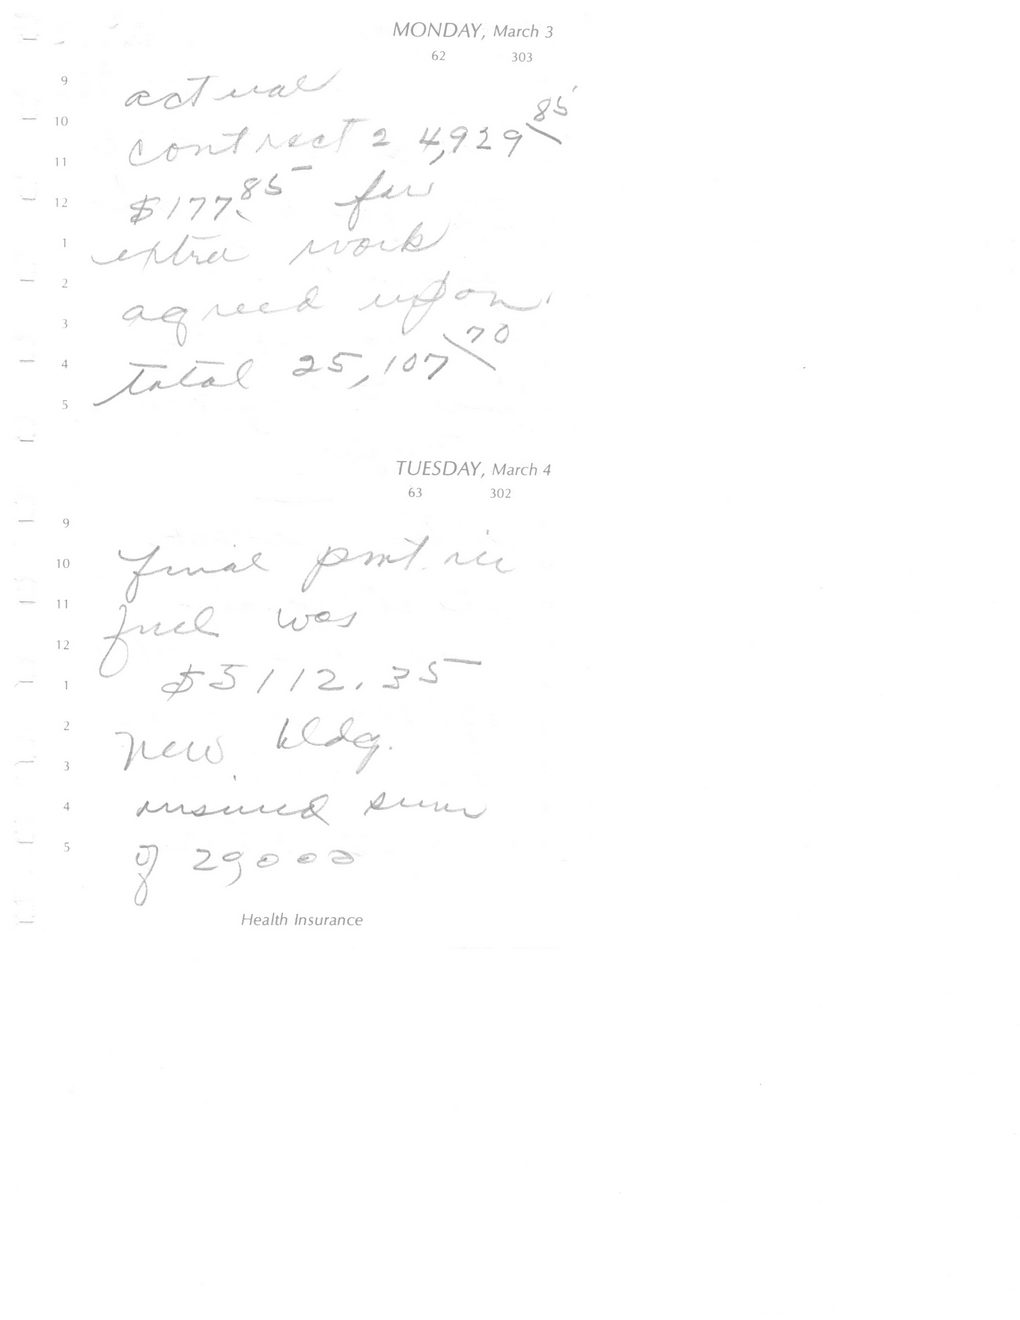 MONDAY, March 3
62 303
9
actual
10
contract 24,929 85
11
12
$177.85 for
1
extra work
2
agreed upon
3
4
total 25,107 70
5
TUESDAY, March 4
63 302
9
10
final pmt. in
11
fuel was
12
1
$5112.35
2
new bldg.
3
4
insured sum
5
of 29000
Health Insurance